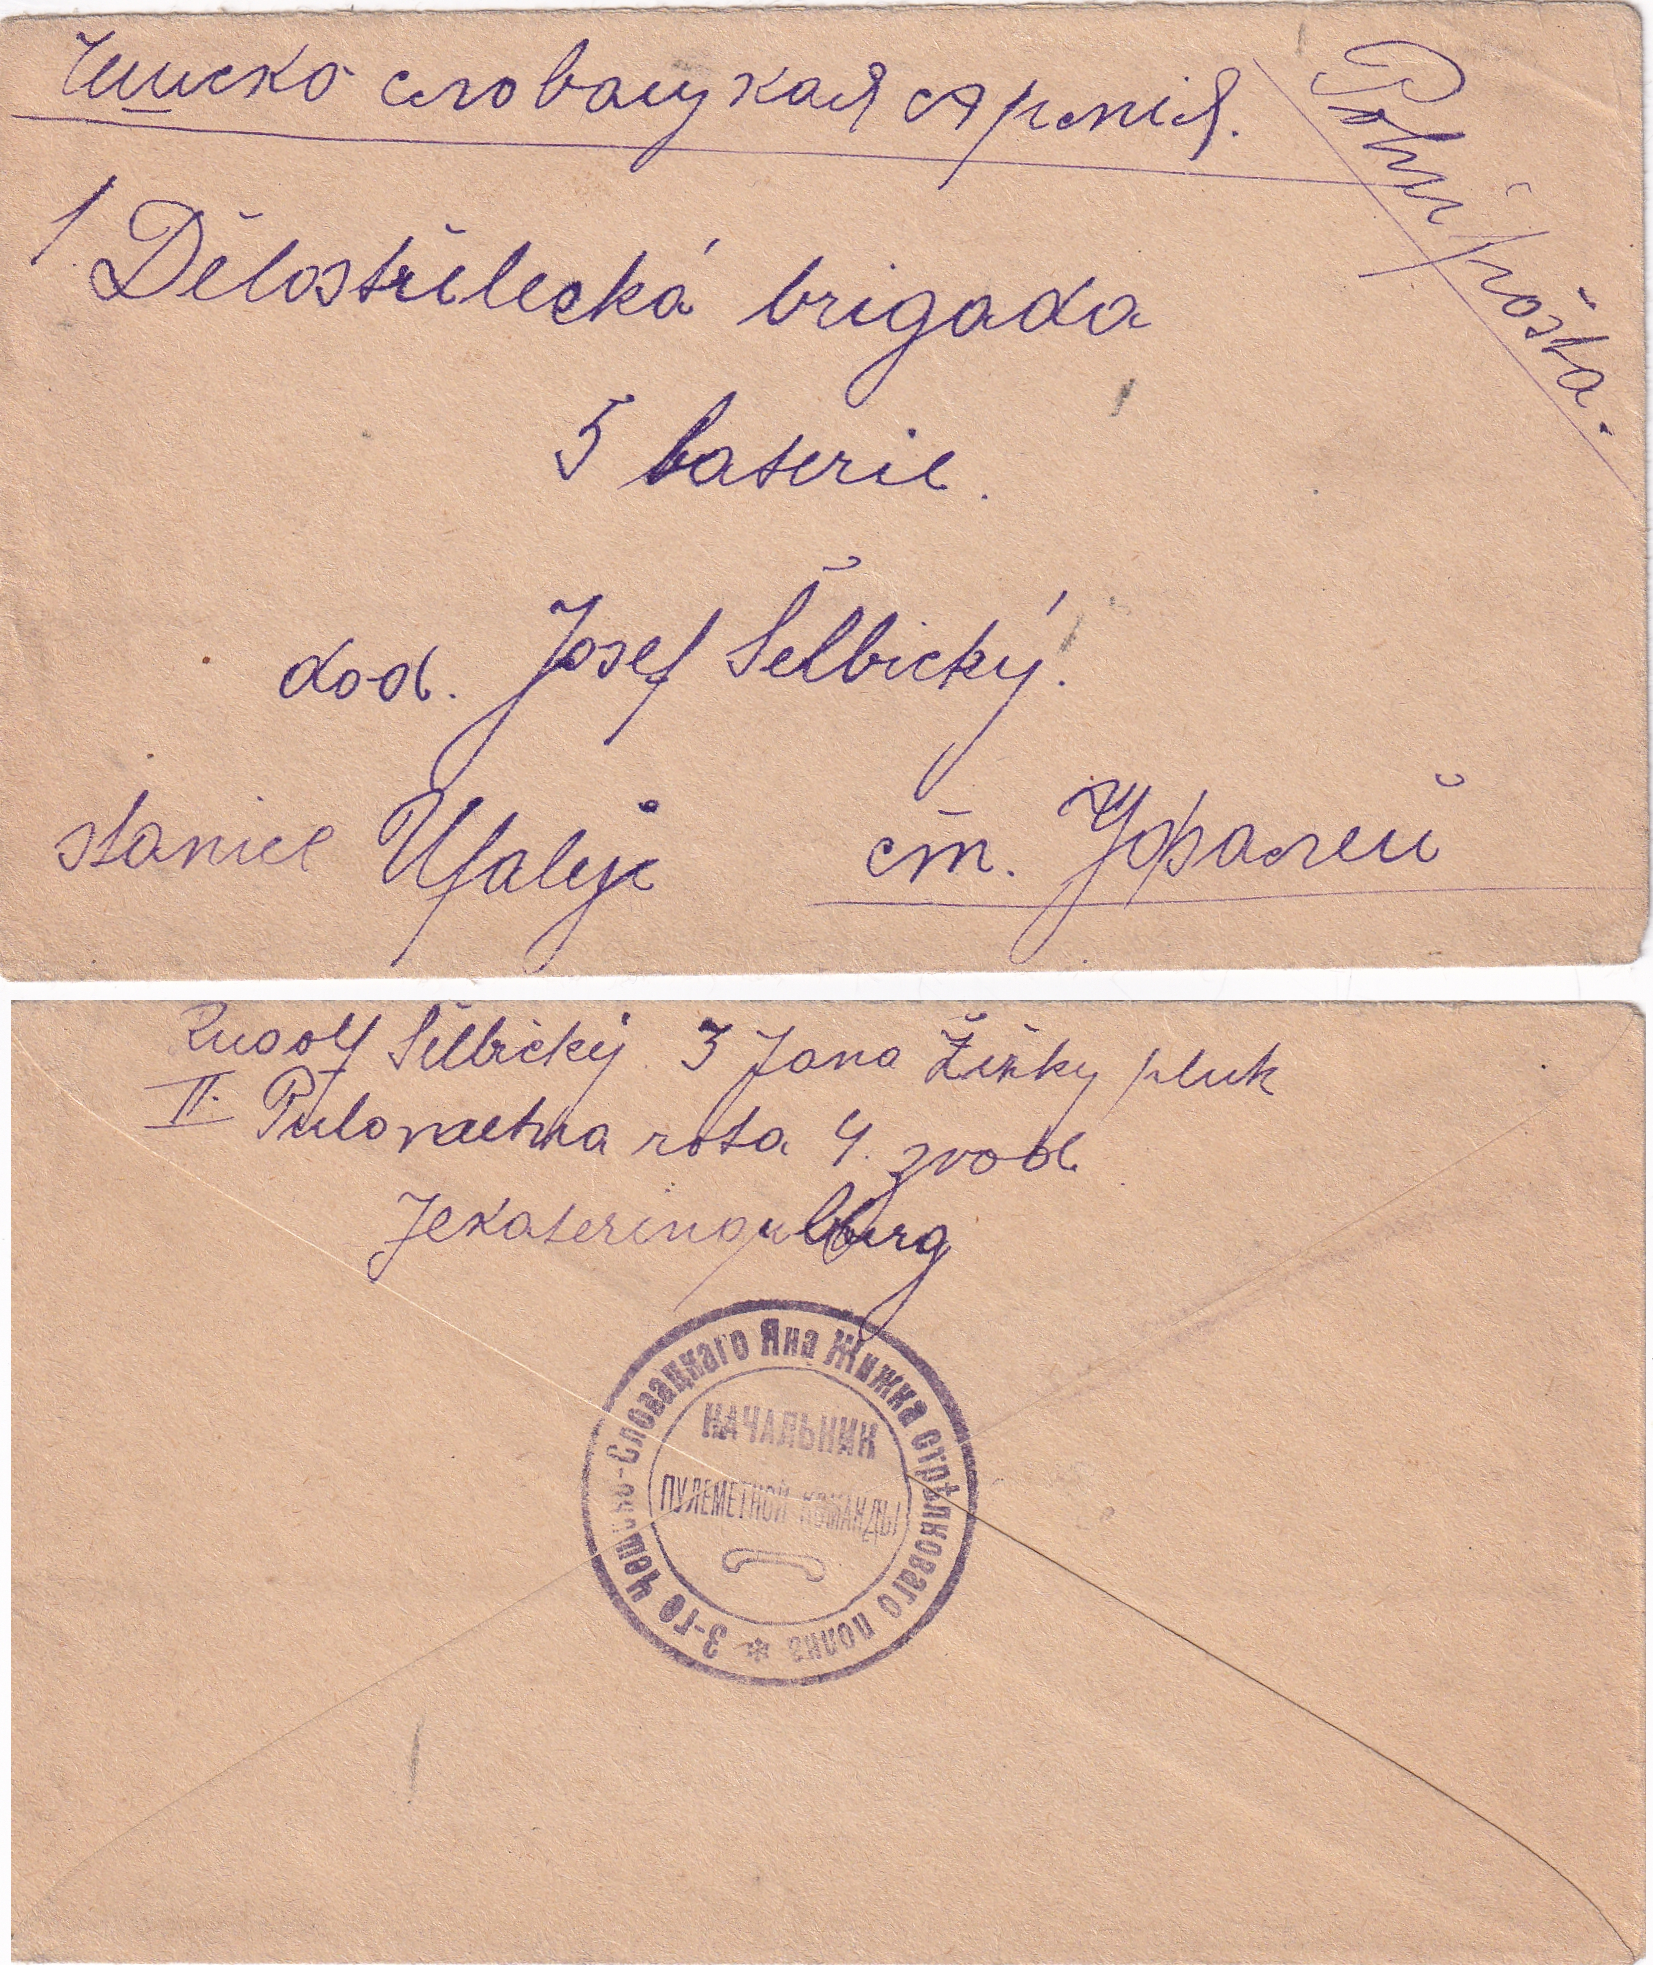 Чешско словацкая Армія.
Polní pošta.
1. Dělostřelecká brigada
5 baterie.
dod. Josef Šelbický.
stanice Ufalej ст. Уфалей
Rudolf Šelbický. 3 Jana Žižky pluk
II. Pulometna rota 4. zvod
Jekaterinburg
3-го Чешско-Словацкаго Яна Жижка стрѣлковаго полка *
НАЧАЛЬНИК
ПУЛЕМЕТНОЙ КОМАНДЫ